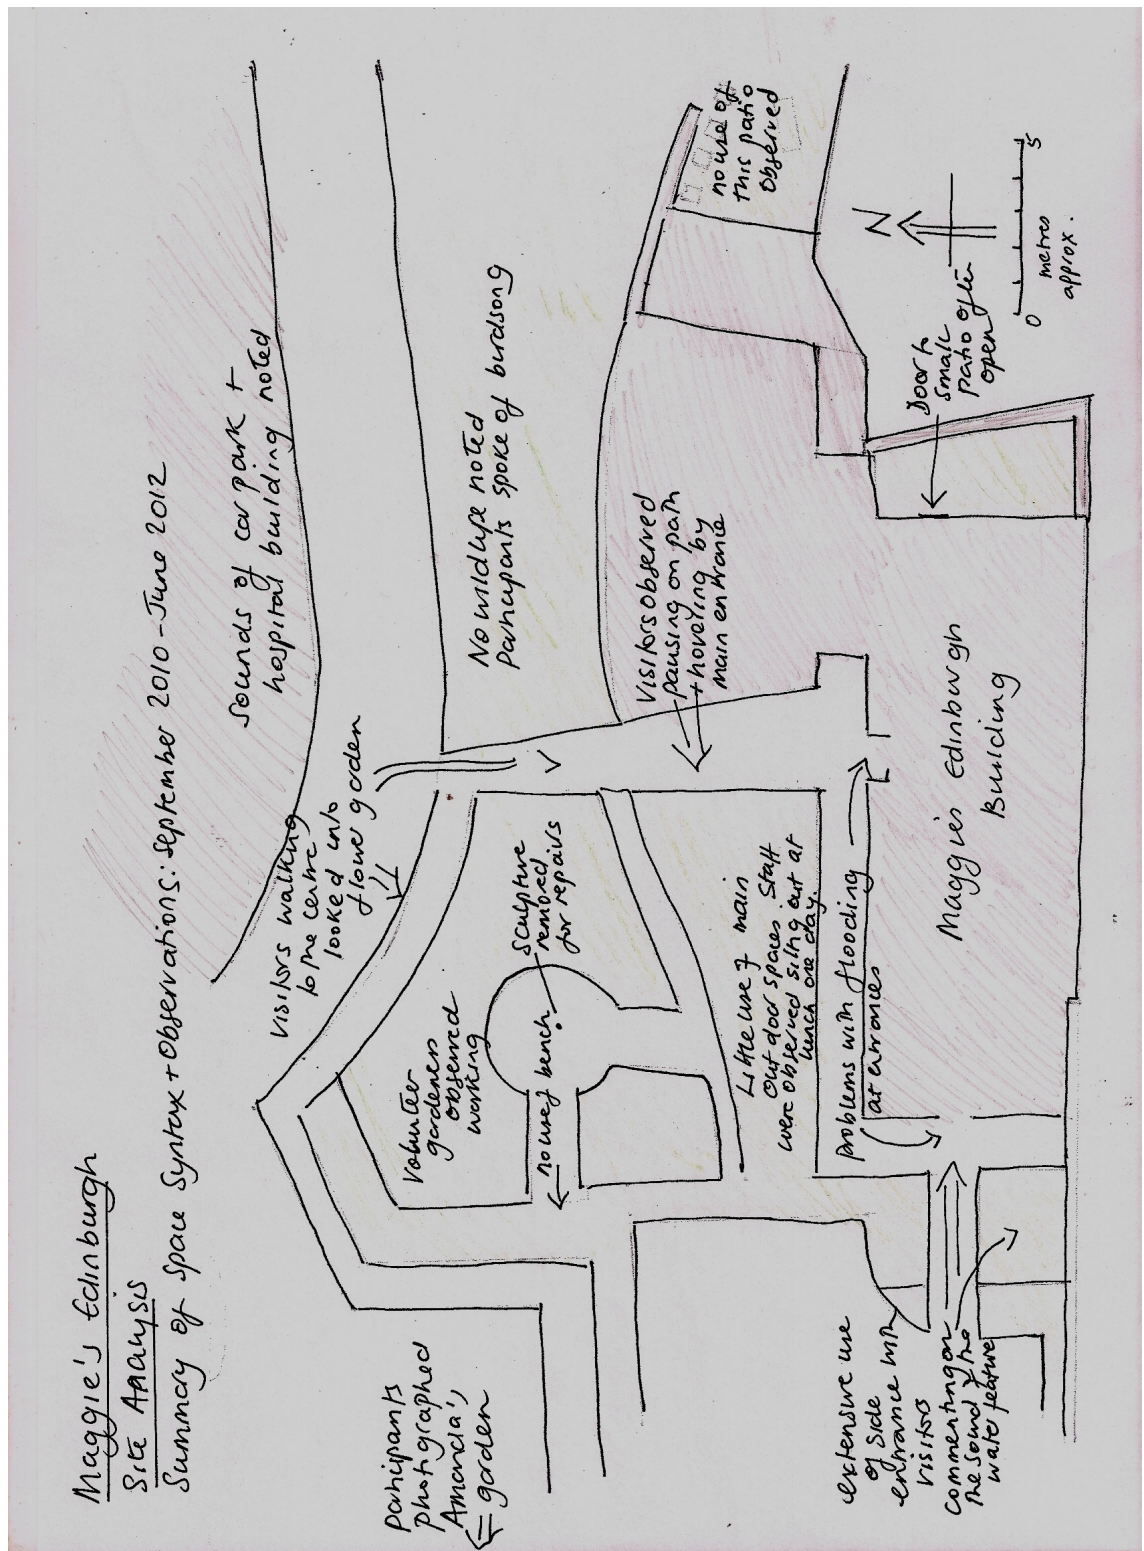 Maggie's Edinburgh
Site Analysis
Summary of Space Syntax + Observations: September 2010 - June 2012
Sounds of car park +
hospital building noted
Visitors walking
to the centre
looked into
flower garden
No wildlife noted
Participants spoke of birdsong
Participants
photographed
Amancia's
garden
Volunteer
gardeners
observed
working
no use of bench
Sculpture
removed
for repairs
Visitors observed
pausing on path
+ hovering by
main entrance
no use of
this patio
observed
Little use of main
outdoor spaces. Staff
were observed sitting out at
lunch one day.
Problems with flooding
at entrances
extensive use
of side
entrance with
visitors
commenting on
the sound of the
water feature
Maggie's Edinburgh
Building
Door to
small
patio often
open
N
0 5
metres
approx.